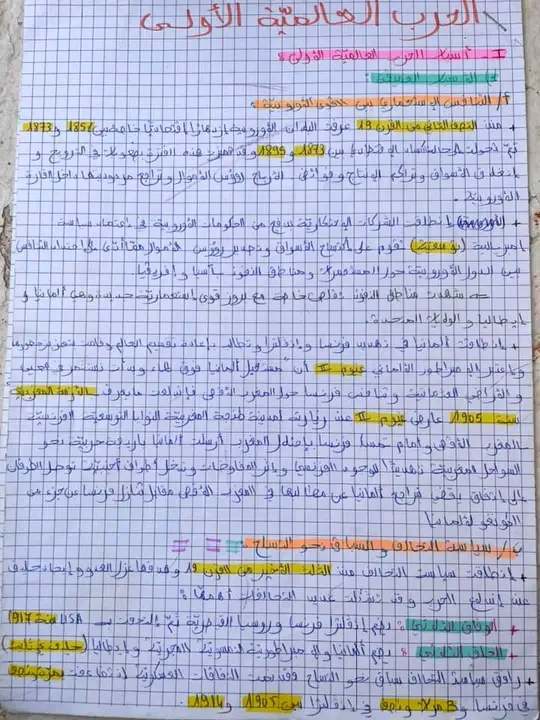 الحرب العالمية الأولى
I - أسباب الحرب العالمية الأولى:
1) الأسباب العميقة:
أ/ التنافس الاستعماري بين القوى الأوروبية:
+ منذ النصف الثاني من القرن 19 عرفت البلدان الأوروبية ازدهارا اقتصاديا خاصة بين 1851 و 1873
ثم تحولت إلى حالة كساد اقتصادي بين 1873 و 1895 وقد تميزت هذه الفترة بصعوبات في الترويج و
انغلاق الأسواق وتراكم الإنتاج وفوائض الأرباح ورؤوس الأموال وتراجع مردوديتها داخل القارة
الأوروبية.
+ انطلقت الشركات الاحتكارية بدفع من الحكومات الأوروبية في اعتماد سياسة
امبريالية تقوم على افتتاح الأسواق وتصدير رؤوس الأموال مما أدى إلى احتداد التنافس
بين الدول الأوروبية حول المستعمرات ومناطق النفوذ بآسيا وإفريقيا
شهدت مناطق النفوذ تقلص خاصة مع بروز قوى استعمارية جديدة وهي ألمانيا و
إيطاليا والولايات المتحدة.
+ انطلقت ألمانيا في تهديد فرنسا وإنقلترا وتطالب بإعادة تقسيم العالم وقامت بتعزيز جيوشها
واعتبر الإمبراطور الألماني غليوم II أن "مستقبل ألمانيا فوق الماء" وبدأت تستثمر في
و الأراضي العثمانية ونافست فرنسا حول المغرب الأقصى فاندلعت ما يعرف بالأزمة المغربية
سنة 1905 عارض غليوم II عند زيارته لمدينة طنجة المغربية النوايا التوسعية الفرنسية
بالمغرب الأقصى وأمام تمسك فرنسا باحتلال المغرب أرسلت ألمانيا بارجة حربية نحو
السواحل المغربية تهديدا للوجود الفرنسي وبإثر المفاوضات وتدخل أطراف أجنبية توصل الطرفان
إلى اتفاق يقضي بتراجع ألمانيا عن مطالبها في المغرب الأقصى مقابل تنازل فرنسا عن جزء من
الكونغو لألمانيا
ب/ سياسة التحالف والسباق نحو التسلح:
+ انطلقت سياسة التحالف منذ الثلث الأخير من القرن 19 وهدفها عزل العدو وإيجاد حليف
عند اندلاع الحرب وقد تشكلت عديد التحالفات أهمها:
+ الوفاق الثلاثي: يضم إنقلترا فرنسا وروسيا القيصرية ثم التحقت بـ USA سنة 1917
+ الحلف الثلاثي: يضم ألمانيا والإمبراطورية النمساوية المجرية وإيطاليا
+ رافق سياسة التحالف سباق نحو التسلح فقد نمت النفقات العسكرية
في فرنسا و 3 مرات ونصف في إنقلترا بين 1905 و 1914.